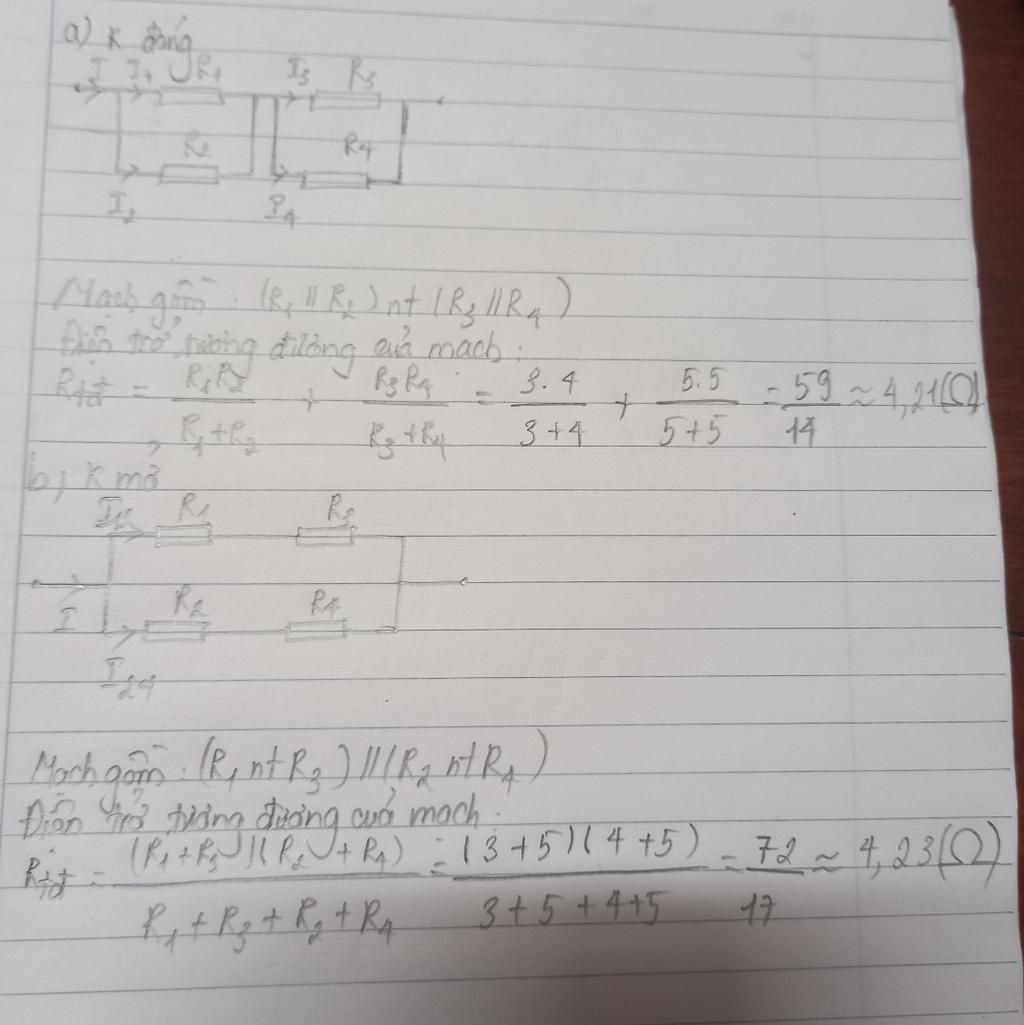 a) K đóng
I I₁ R₁ I₃ R₃
R₂ R₄
I₂ I₄
Mạch gồm : (R₁ // R₂) nt (R₃ // R₄)
Điện trở tương đương của mạch :
Rtđ = R₁R₂ / R₁+R₂ + R₃R₄ / R₃+R₄ = 3.4 / 3+4 + 5.5 / 5+5 = 59 / 14 ≈ 4,21(Ω)
b) K mở
I₁₃ R₁ R₃
R₂ R₄
I
I₂₄
Mạch gồm : (R₁ nt R₃) // (R₂ nt R₄)
Điện trở tương đương của mạch :
Rtđ = (R₁+R₃)(R₂+R₄) / R₁+R₃+R₂+R₄ = (3+5)(4+5) / 3+5+4+5 = 72 / 17 ≈ 4,23(Ω)